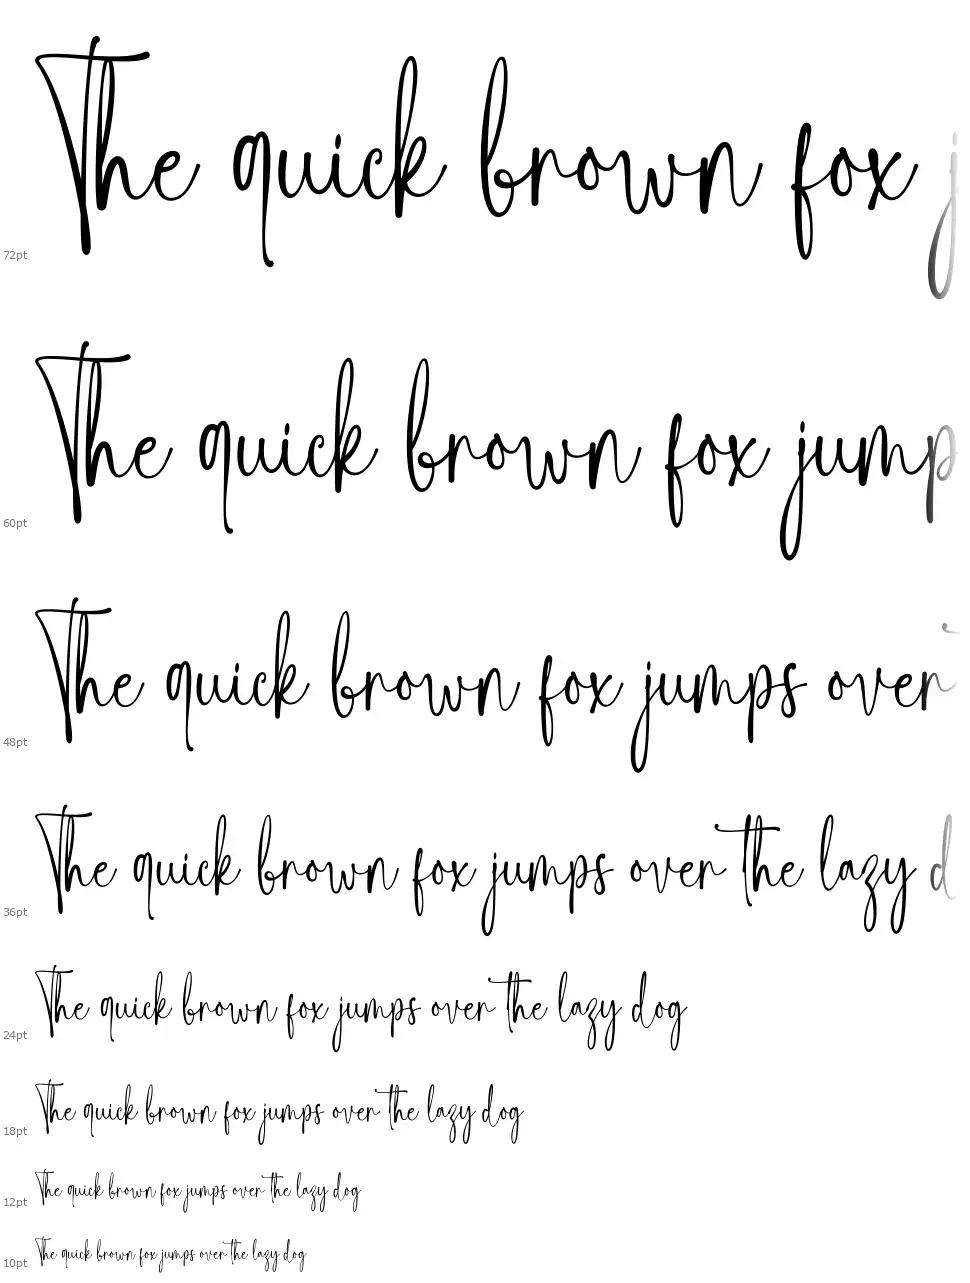 The quick brown fox j
72pt
The quick brown fox jump
60pt
The quick brown fox jumps over
48pt
The quick brown fox jumps over the lazy d
36pt
The quick brown fox jumps over the lazy dog
24pt
The quick brown fox jumps over the lazy dog
18pt
The quick brown fox jumps over the lazy dog
12pt
The quick brown fox jumps over the lazy dog
10pt